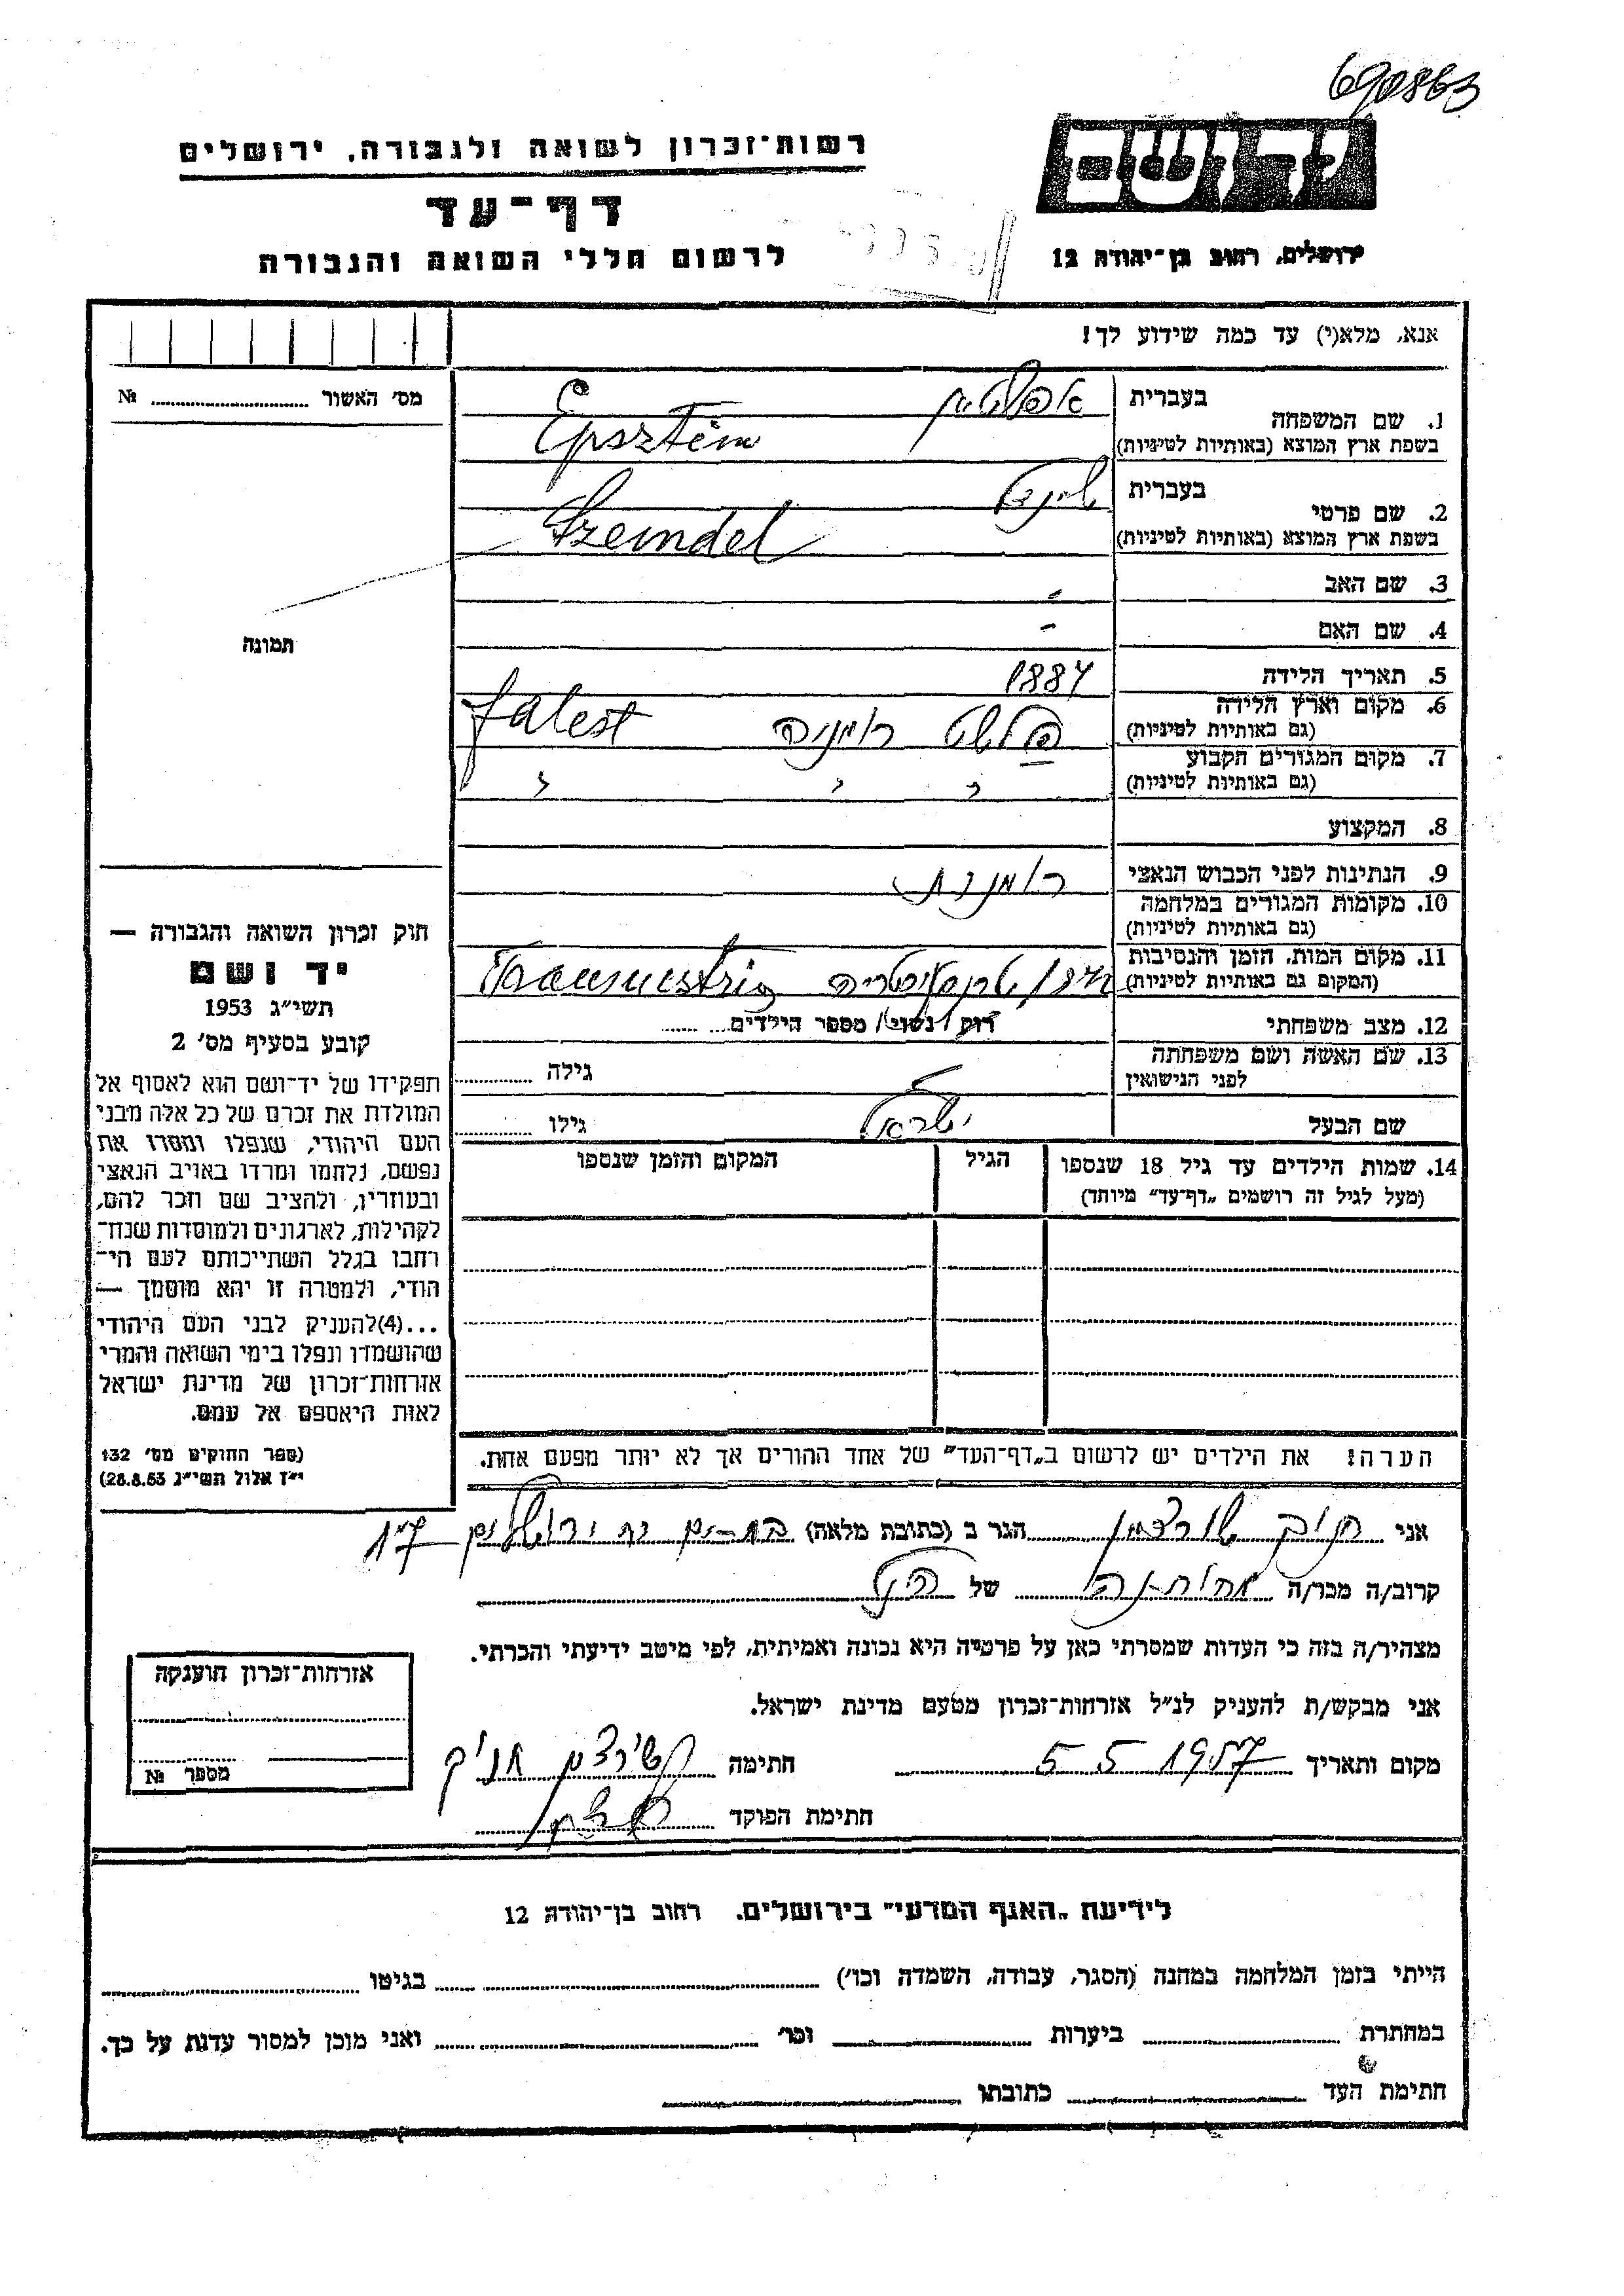 690863
רשות־זכרון לשואה ולגבורה, ירושלים
יד ושם
דף־עד
לרשום חללי השואה והגבורה
ירושלים, רחוב בן־יהודה 12
אנא, מלא(י) עד כמה שידוע לך!
מס' האשור № ........
1. שם המשפחה בעברית אפשטיין
בשפת ארץ המוצא (באותיות לטיניות) Epsztein
2. שם פרטי בעברית שיינדל
בשפת ארץ המוצא (באותיות לטיניות) Szeindel
3. שם האב -
4. שם האם -
תמונה
5. תאריך הלידה 1884
6. מקום וארץ הלידה
(גם באותיות לטיניות) פלשט רומניה falest
7. מקום המגורים הקבוע
(גם באותיות לטיניות) " " "
8. המקצוע
9. הנתינות לפני הכבוש הנאצי רומנית
10. מקומות המגורים במלחמה
(גם באותיות לטיניות)
11. מקום המות, הזמן והנסיבות
(המקום גם באותיות לטיניות) טרנסניסטריה
12. מצב משפחתי רוק / נשוי / מספר הילדים........
13. שם האשה ושם משפחתה
לפני הנישואין גילה ........
שם הבעל ישראל גילו ........
14. שמות הילדים עד גיל 18 שנספו
(מעל לגיל זה רושמים „דף־עד" מיוחד)
הגיל
המקום והזמן שנספו
חוק זכרון השואה והגבורה —
יד ושם
תשי"ג 1953
קובע בסעיף מס' 2
תפקידו של יד־ושם הוא לאסוף אל
המולדת את זכרם של כל אלה מבני
העם היהודי, שנפלו ומסרו את
נפשם, נלחמו ומרדו באויב הנאצי
ובעוזריו, ולהציב שם וזכר להם,
לקהילות, לארגונים ולמוסדות שנח־
רבו בגלל השתייכותם לעם הי־
הודי, ולמטרה זו יהא מוסמך —
...(4) להעניק לבני העם היהודי
שהושמדו ונפלו בימי השואה והמרי
אזרחות־זכרון של מדינת ישראל
לאות היאספם אל עמם.
(ספר החוקים מס' 132
י"ז אלול תשי"ג 28.8.53)
הערה! את הילדים יש לרשום ב„דף־העד" של אחד ההורים אך לא יותר מפעם אחת.
אני חנוך שורצמן הגר ב (כתובת מלאה) בת-ים
קרוב/ה מכר/ה של
מצהיר/ה בזה כי העדות שמסרתי כאן על פרטיה היא נכונה ואמיתית, לפי מיטב ידיעתי והכרתי.
אני מבקש/ת להעניק לנ"ל אזרחות־זכרון מטעם מדינת ישראל.
מקום ותאריך 5 5 1957 חתימה
חתימת הפוקד
אזרחות־זכרון הוענקה
מספר №
לידיעת „האגף המדעי" בירושלים, רחוב בן־יהודה 12
הייתי בזמן המלחמה במחנה (הסגר, עבודה, השמדה וכו') ........ בגיטו ........
במחתרת ........ ביערות ........ וכו' ........ ואני מוכן למסור עדות על כך.
חתימת העד ........ כתובתו ........